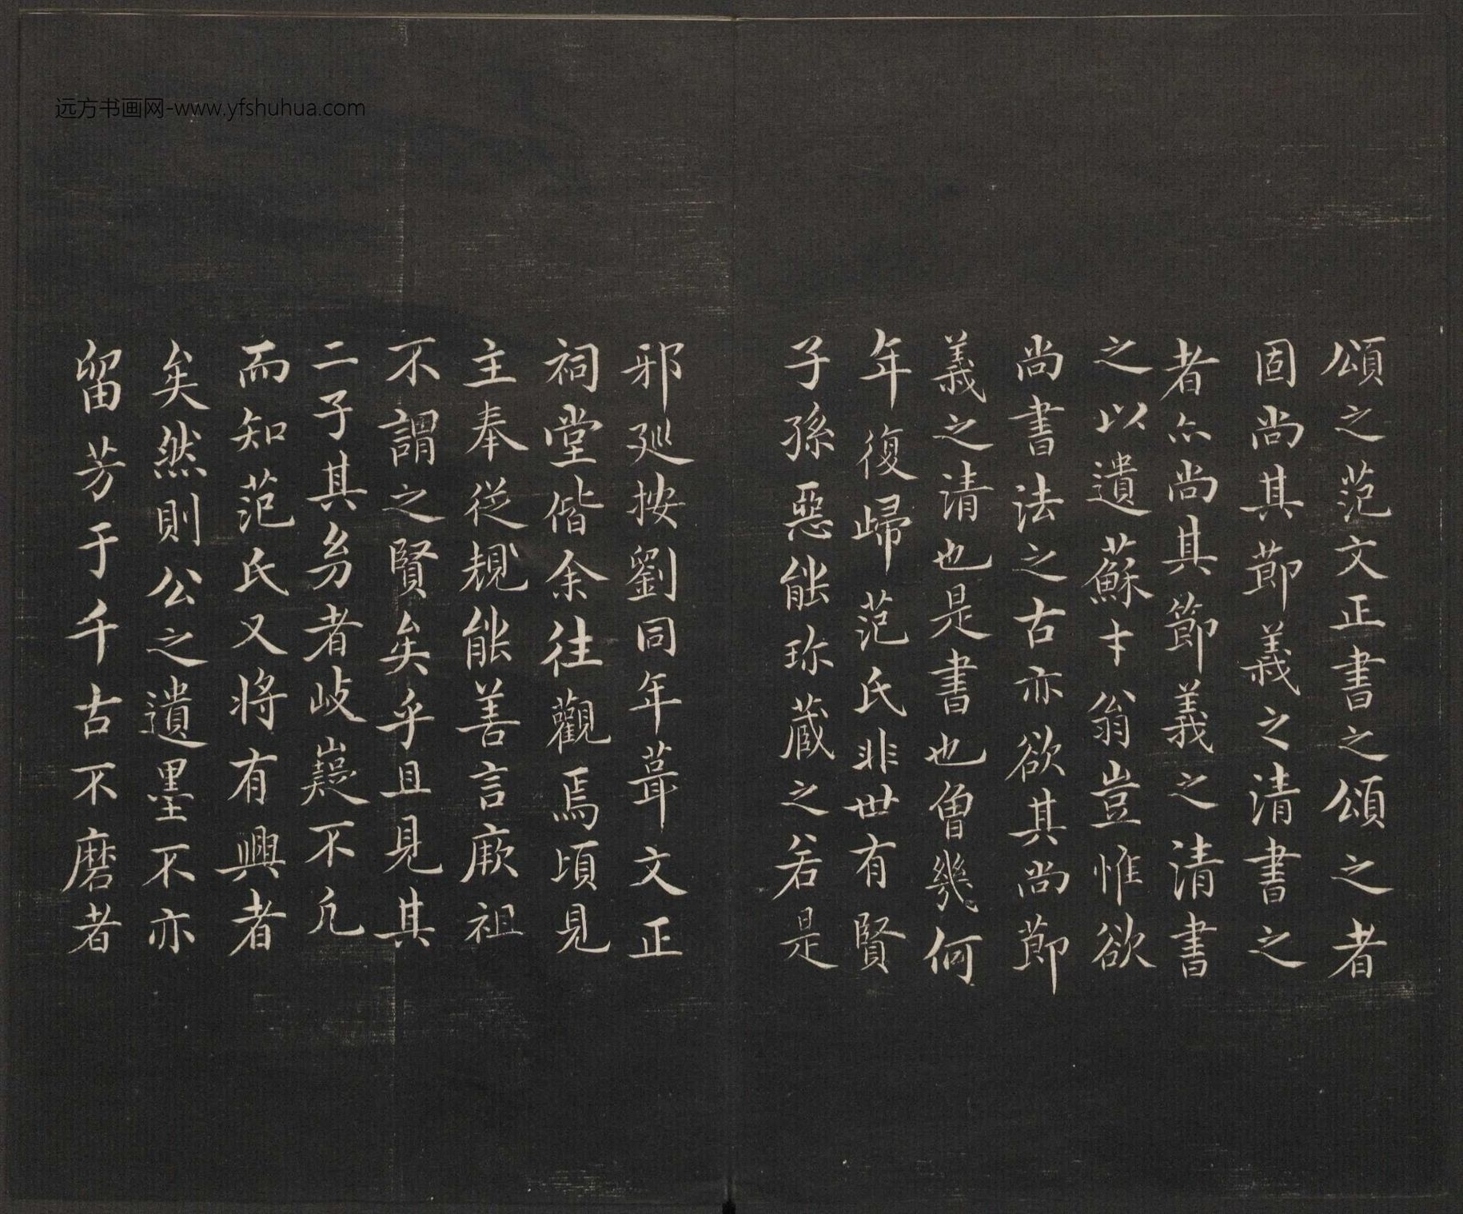 远方书画网-www.yfshuhua.com
頌之范文正書之頌之者
固尚其節義之清書之
者亦尚其節義之清書
之以遺蘇才翁豈惟欲
尚書法之古亦欲其尚節
義之清也是書也曾幾何
年復歸范氏非世有賢
子孫惡能珎蔵之若是
邪廵按劉同年葺文正
祠堂偕余往觀焉頃見
主奉從規能善言厥祖
不謂之賢矣乎且見其
二子其幼者岐嶷不凡
而知范氏又将有興者
矣然則公之遺墨不亦
留芳于千古不磨者